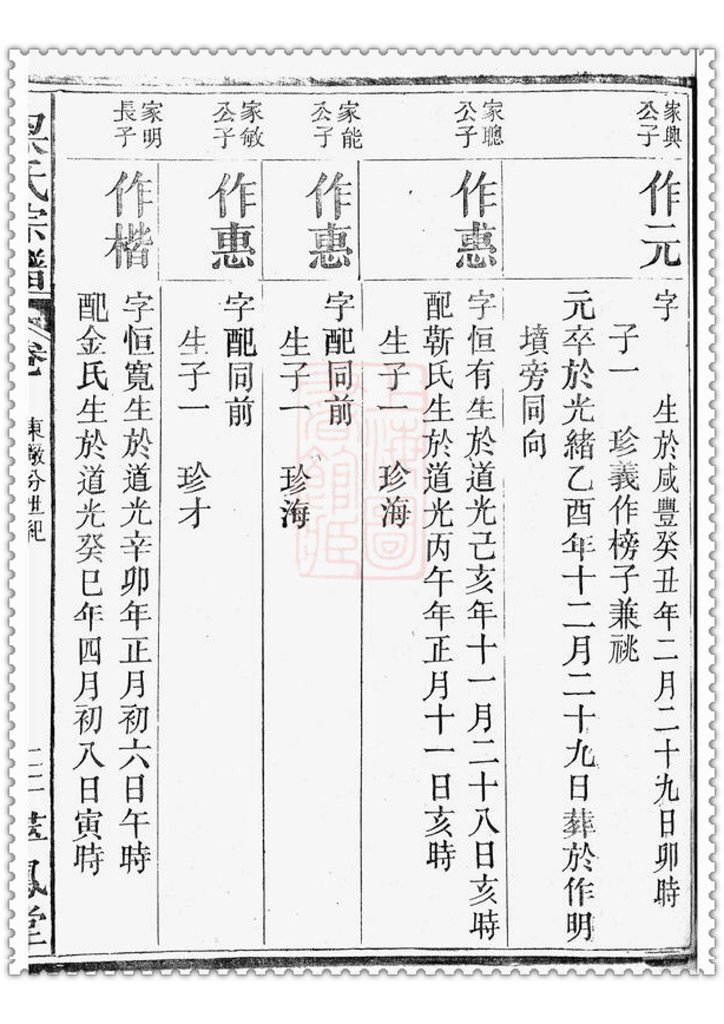 家興
公子
作元
字　　生於咸豐癸丑年二月二十九日卯時
子一　珍義作榜子兼祧
元卒於光緒乙酉年十二月二十九日葬於作明
墳旁同向
家聰
公子
作惠
字恒有生於道光己亥年十一月二十八日亥時
配靳氏生於道光丙午年正月十一日亥時
生子一　珍海
家能
公子
作惠
字配同前
生子一　珍海
家敏
公子
作惠
字配同前
生子一　珍才
家明
長子
作楷
字恒寬生於道光辛卯年正月初六日午時
配金氏生於道光癸巳年四月初八日寅時
氏宗譜
卷
東　分世紀
鳳堂